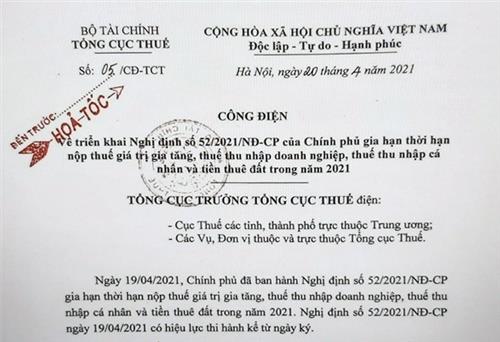 BỘ TÀI CHÍNH
TỔNG CỤC THUẾ
CỘNG HÒA XÃ HỘI CHỦ NGHĨA VIỆT NAM
Độc lập - Tự do - Hạnh phúc
Số: 05/CĐ-TCT
Hà Nội, ngày 20 tháng 4 năm 2021
ĐẾN TRƯỚC
HOẢ-TỐC
CÔNG ĐIỆN
Về triển khai Nghị định số 52/2021/NĐ-CP của Chính phủ gia hạn thời hạn
nộp thuế giá trị gia tăng, thuế thu nhập doanh nghiệp, thuế thu nhập cá
nhân và tiền thuê đất trong năm 2021
TỔNG CỤC TRƯỞNG TỔNG CỤC THUẾ điện:
- Cục Thuế các tỉnh, thành phố trực thuộc Trung ương;
- Các Vụ, Đơn vị thuộc và trực thuộc Tổng cục Thuế.
Ngày 19/04/2021, Chính phủ đã ban hành Nghị định số 52/2021/NĐ-CP
gia hạn thời hạn nộp thuế giá trị gia tăng, thuế thu nhập doanh nghiệp, thuế thu
nhập cá nhân và tiền thuê đất trong năm 2021. Nghị định số 52/2021/NĐ-CP
ngày 19/04/2021 có hiệu lực thi hành kể từ ngày ký.